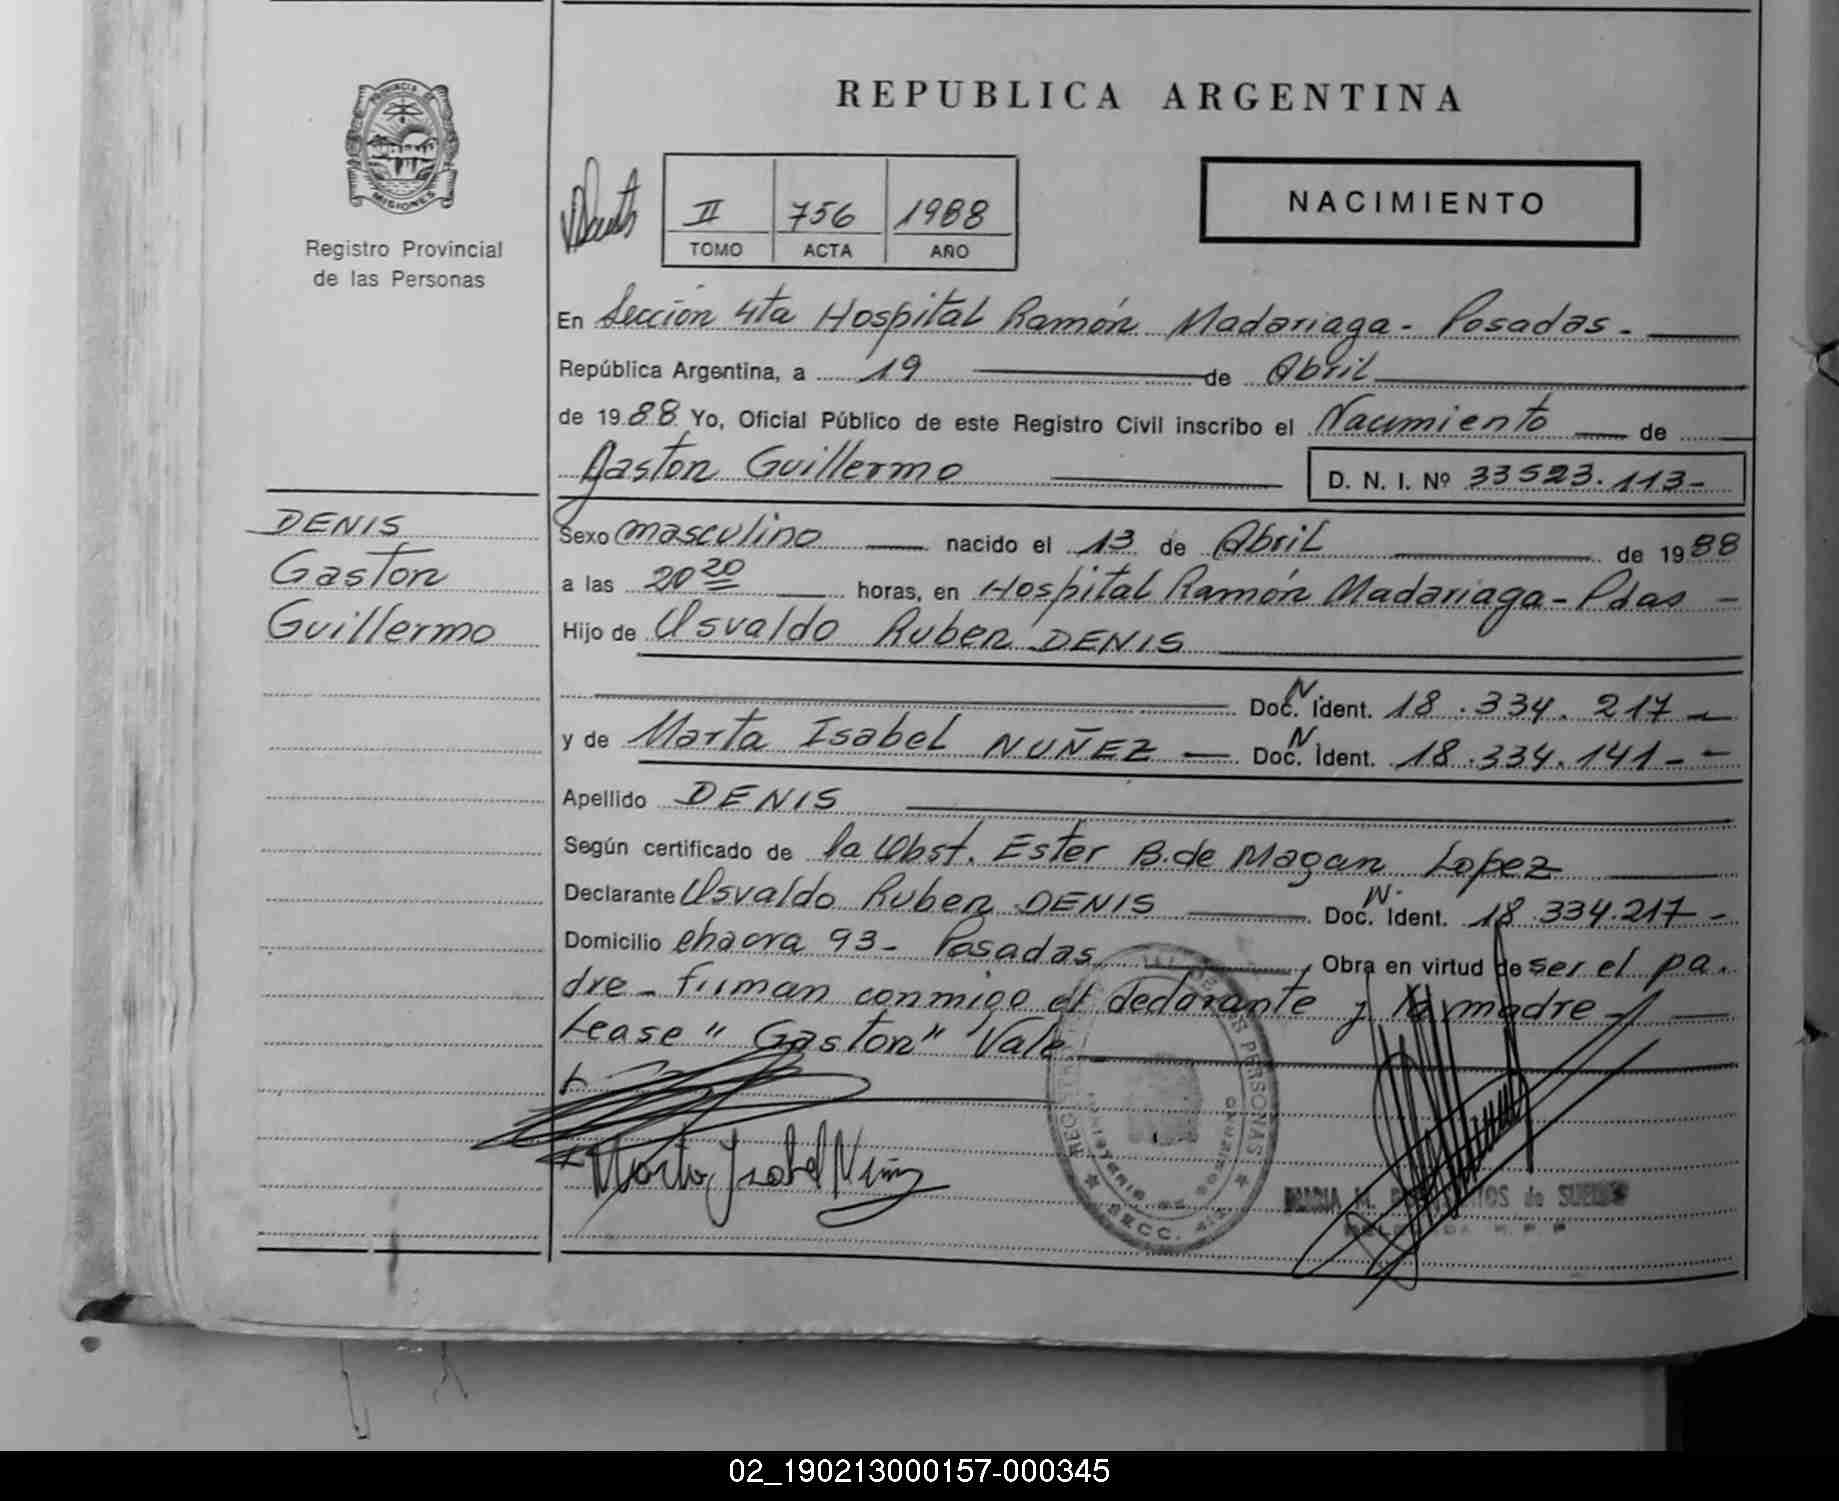 PROVINCIA DE
MISIONES
Registro Provincial
de las Personas
DENIS
Gaston
Guillermo
REPUBLICA ARGENTINA
II 756 1988
TOMO ACTA AÑO
NACIMIENTO
En Sección 4ta Hospital Ramón Madariaga - Posadas -
República Argentina, a 19 de Abril
de 1988 Yo, Oficial Público de este Registro Civil inscribo el Nacimiento de
Gaston Guillermo D. N. I. Nº 33523.113-
Sexo masculino nacido el 13 de Abril de 1988
a las 20 20 horas, en Hospital Ramón Madariaga - Pdas -
Hijo de Osvaldo Ruben DENIS
Doc. N. Ident. 18.334.217 -
y de Marta Isabel NUÑEZ Doc. N Ident. 18.334.141 -
Apellido DENIS
Según certificado de la Obst. Ester B. de Magan Lopez
Declarante Osvaldo Ruben DENIS Doc. N. Ident. 18.334.217 -
Domicilio chacra 93 - Posadas Obra en virtud de ser el pa.
dre - firman conmigo el declarante y la madre -
Lease "Gaston" Vale
Marta Isabel Nuñez
PERSONAS
SECC. 4ta
de
02_190213000157-000345